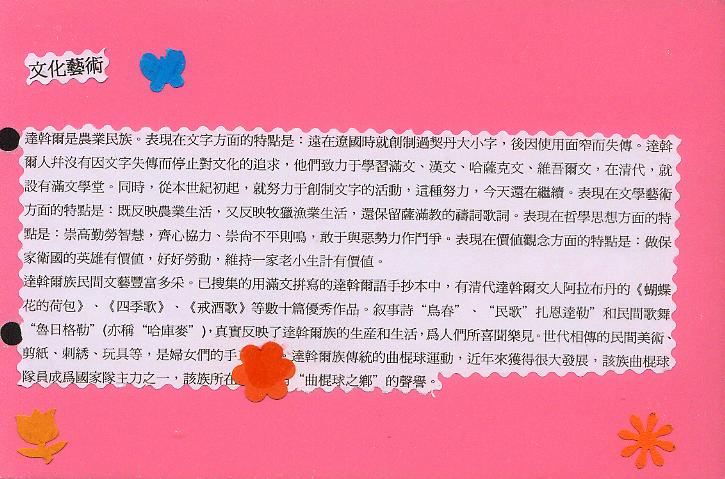 文化藝術
達斡爾是農業民族。表現在文字方面的特點是：遠在遼國時就創制過契丹大小字，後因使用面窄而失傳。達斡
爾人幷沒有因文字失傳而停止對文化的追求，他們致力于學習滿文、漢文、哈薩克文、維吾爾文，在清代，就
設有滿文學堂。同時，從本世紀初起，就努力于創制文字的活動，這種努力，今天還在繼續。表現在文學藝術
方面的特點是：既反映農業生活，又反映牧獵漁業生活，還保留薩滿教的禱詞歌詞。表現在哲學思想方面的特
點是：崇高勤勞智慧，齊心協力、崇尚不平則鳴，敢于與惡勢力作鬥爭。表現在價值觀念方面的特點是：做保
家衛國的英雄有價值，好好勞動，維持一家老小生計有價值。
達斡爾族民間文藝豐富多采。已搜集的用滿文拼寫的達斡爾語手抄本中，有清代達斡爾文人阿拉布丹的《蝴蝶
花的荷包》、《四季歌》、《戒酒歌》等數十篇優秀作品。叙事詩“鳥春”、“民歌”扎恩達勒”和民間歌舞
“魯日格勒”(亦稱“哈庫麥”)，真實反映了達斡爾族的生産和生活，爲人們所喜聞樂見。世代相傳的民間美術、
剪紙、刺綉、玩具等，是婦女們的手 。達斡爾族傳統的曲棍球運動，近年來獲得很大發展，該族曲棍球
隊員成爲國家隊主力之一，該族所在 “曲棍球之鄉”的聲譽。